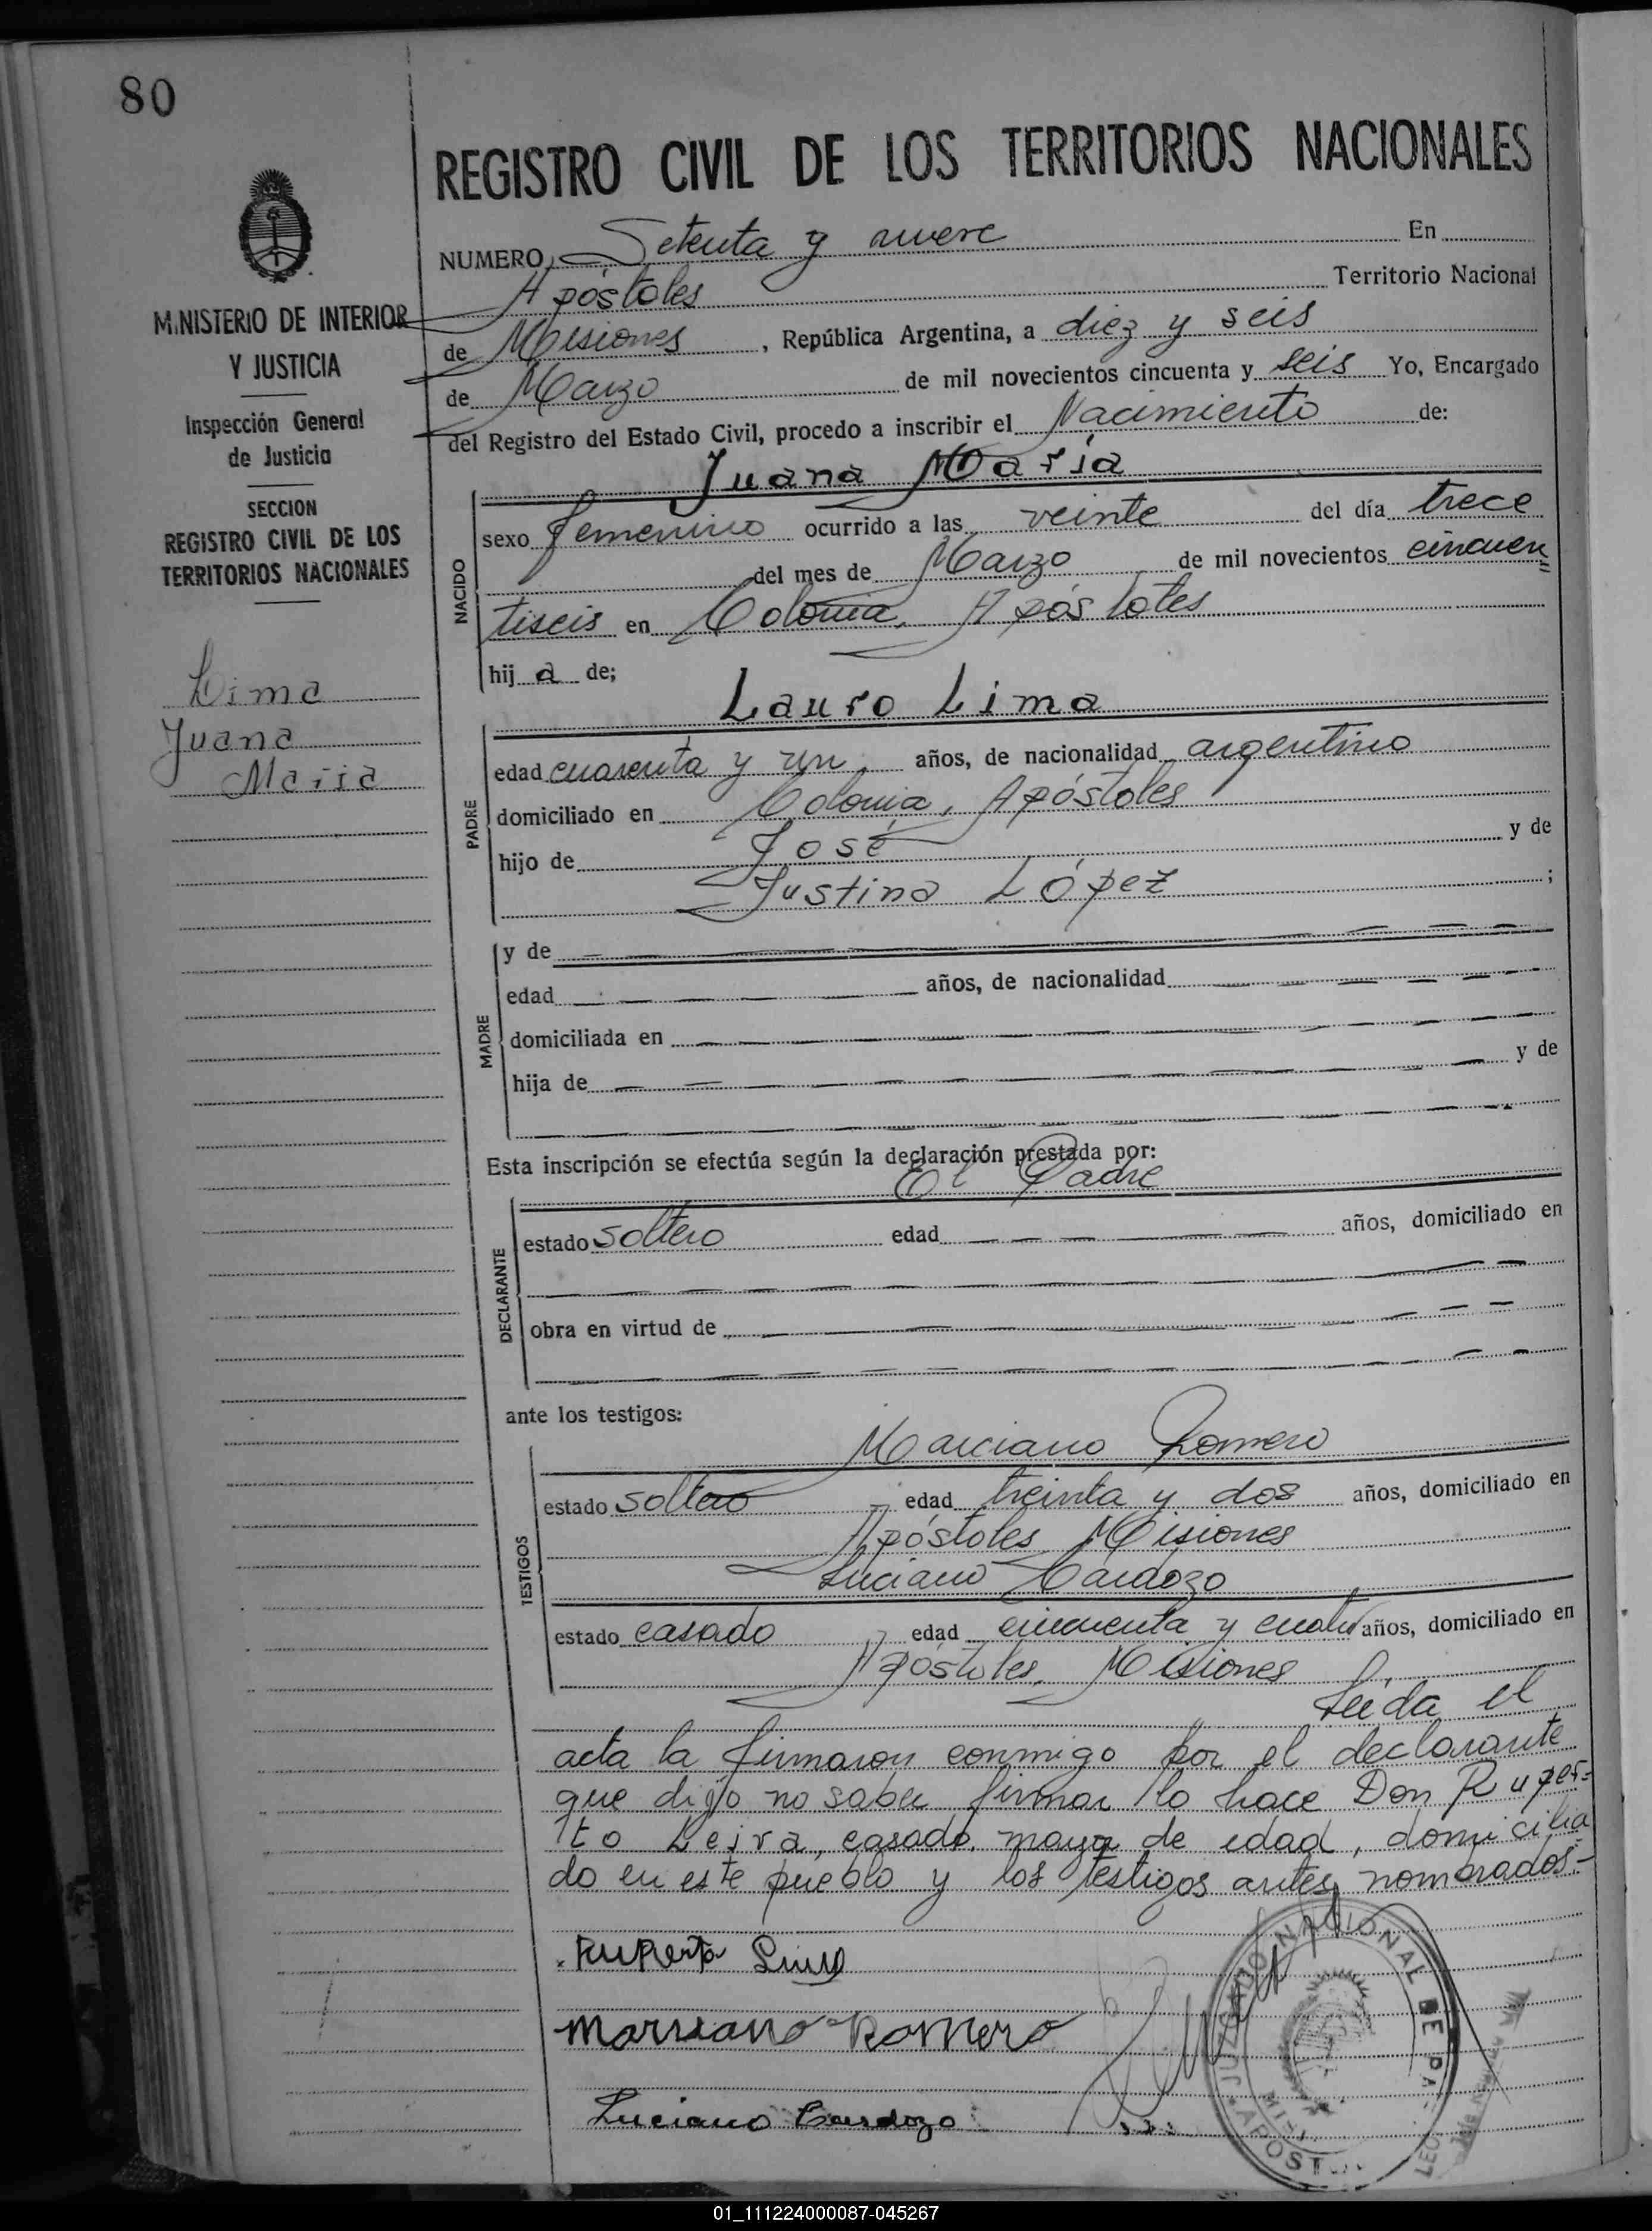 80
REGISTRO CIVIL DE LOS TERRITORIOS NACIONALES
MINISTERIO DE INTERIOR
Y JUSTICIA
Inspección General
de Justicia
SECCION
REGISTRO CIVIL DE LOS
TERRITORIOS NACIONALES
Lima
Juana
Maria
NUMERO Setenta y nueve En
Apóstoles Territorio Nacional
de Misiones, República Argentina, a diez y seis
de Marzo de mil novecientos cincuenta y seis Yo, Encargado
del Registro del Estado Civil, procedo a inscribir el Nacimiento de:
Juana María
NACIDO
sexo femenino ocurrido a las veinte del día trece
del mes de Marzo de mil novecientos cincuen
tiseis en Colonia, Apóstoles
hij a de;
Lauro Lima
PADRE
edad cuarenta y un, años, de nacionalidad argentino
domiciliado en Colonia, Apóstoles
hijo de José y de
Justina López ;
MADRE
y de
edad años, de nacionalidad
domiciliada en
hija de y de
Esta inscripción se efectúa según la declaración prestada por:
El Padre
DECLARANTE
estado soltero edad años, domiciliado en
obra en virtud de
ante los testigos:
Marciano Romero
TESTIGOS
estado soltero edad treinta y dos años, domiciliado en
Apóstoles Misiones
Luciano Cardozo
estado casado edad cincuenta y cuatro años, domiciliado en
Apóstoles, Misiones
Leída el
acta la firmaron conmigo por el declarante
que dijo no saber firmar lo hace Don Ruper=
to Leiva, casado, mayor de edad, domicilia
do en este pueblo y los testigos antes nombrados=
Ruperto
Marciano Romero
Luciano Cardozo
JUZGADO NACIONAL DE PAZ
01_111224000087-045267